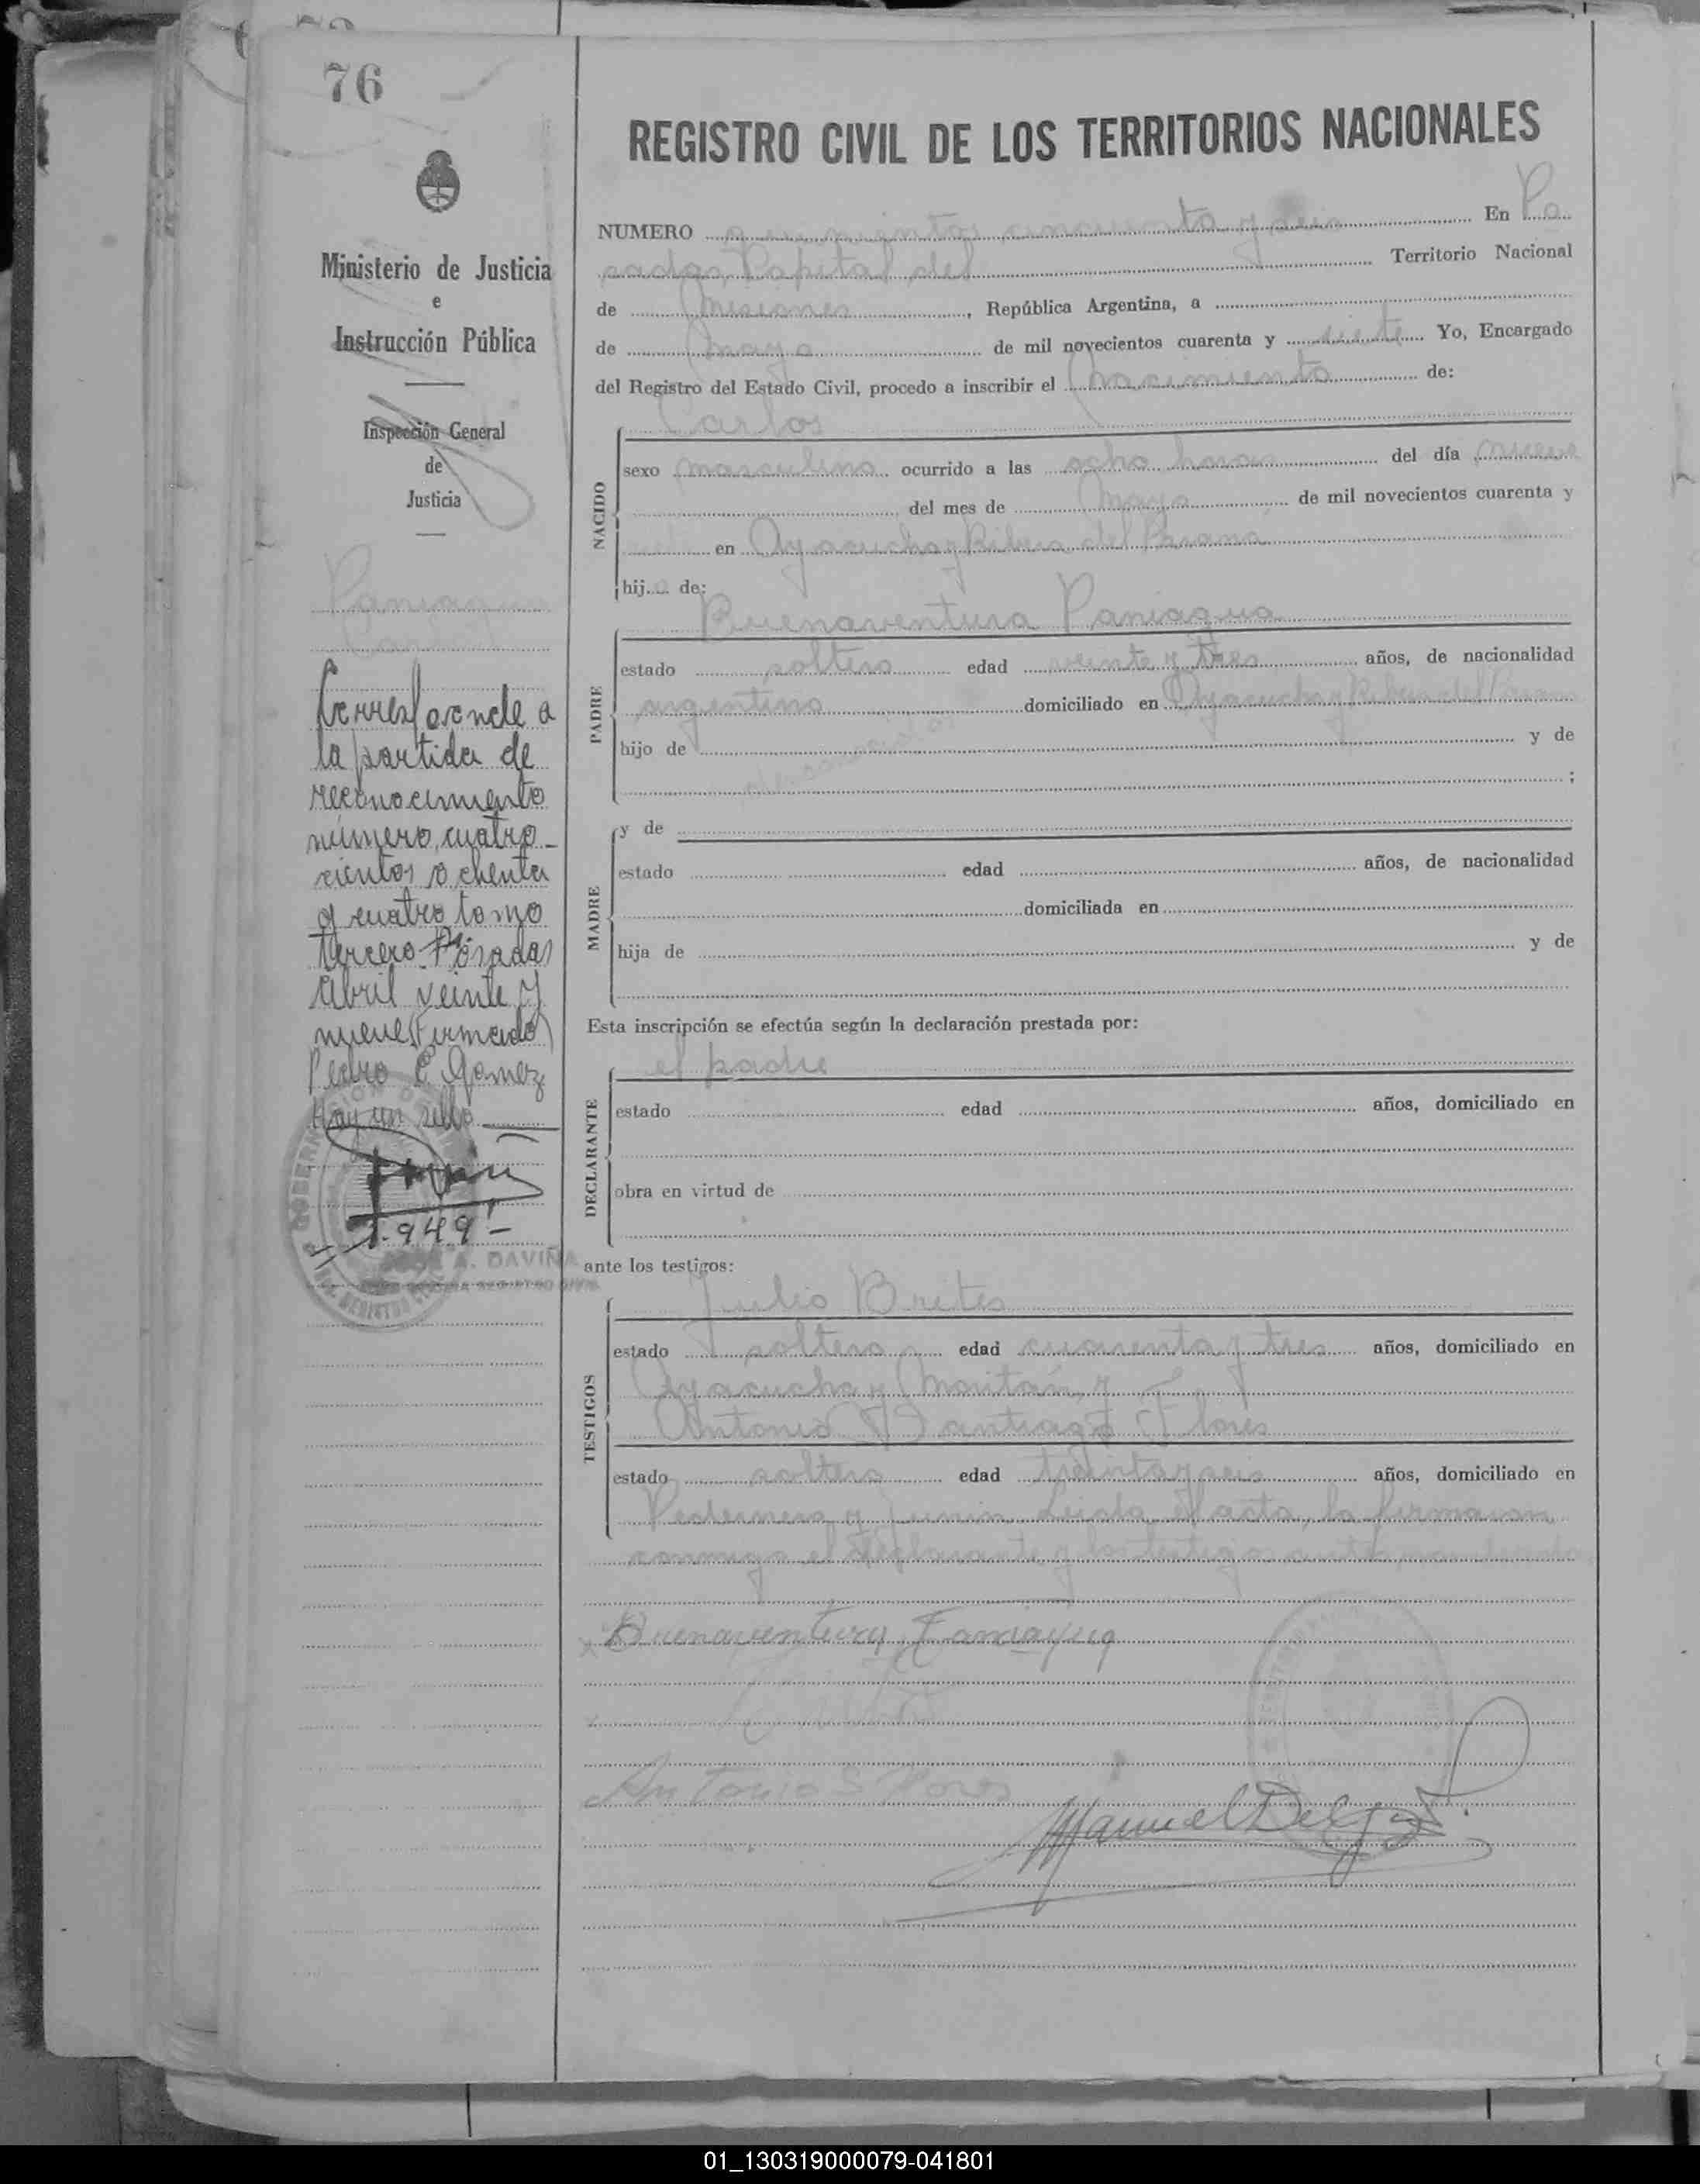 76
Ministerio de Justicia
e
Instrucción Pública
Inspección General
de
Justicia
Paniagua
Carlos
Corresponde a
la partida de
reconocimiento
número cuatro-
cientos ochenta
y cuatro tomo
tercero Posadas
Abril veinte y
nueve (Firmado)
Pedro E Gomez
Hay un sello
1.949-
A. DAVIÑA
REGISTRO CIVIL DE LOS TERRITORIOS NACIONALES
NUMERO quinientos cincuenta y seis En Po
sadas, Capital del Territorio Nacional
de Misiones, República Argentina, a
de Mayo de mil novecientos cuarenta y siete Yo, Encargado
del Registro del Estado Civil, procedo a inscribir el nacimiento de:
Carlos
NACIDO
sexo masculino ocurrido a las ocho horas del día nueve
del mes de Mayo de mil novecientos cuarenta y
en Ayacucho y Ribera del Paraná
hijo de:
Buenaventura Paniagua
PADRE
estado soltero edad veinte y tres años, de nacionalidad
argentino domiciliado en Ayacucho y Ribera del Paraná
hijo de y de
;
MADRE
y de
estado edad años, de nacionalidad
domiciliada en
hija de y de
Esta inscripción se efectúa según la declaración prestada por:
el padre
DECLARANTE
estado edad años, domiciliado en
obra en virtud de
ante los testigos:
Julio Brites
TESTIGOS
estado soltero edad cuarenta y tres años, domiciliado en
Ayacucho y Moritán, y
Antonio Santiago Flores
estado soltero edad treinta y seis años, domiciliado en
Pedernera y Junín. Leida el acta, la firmaron
conmigo el declarante y los testigos
Buenaventura Paniagua
Antonio S Flores
Manuel Delg
01_130319000079-041801